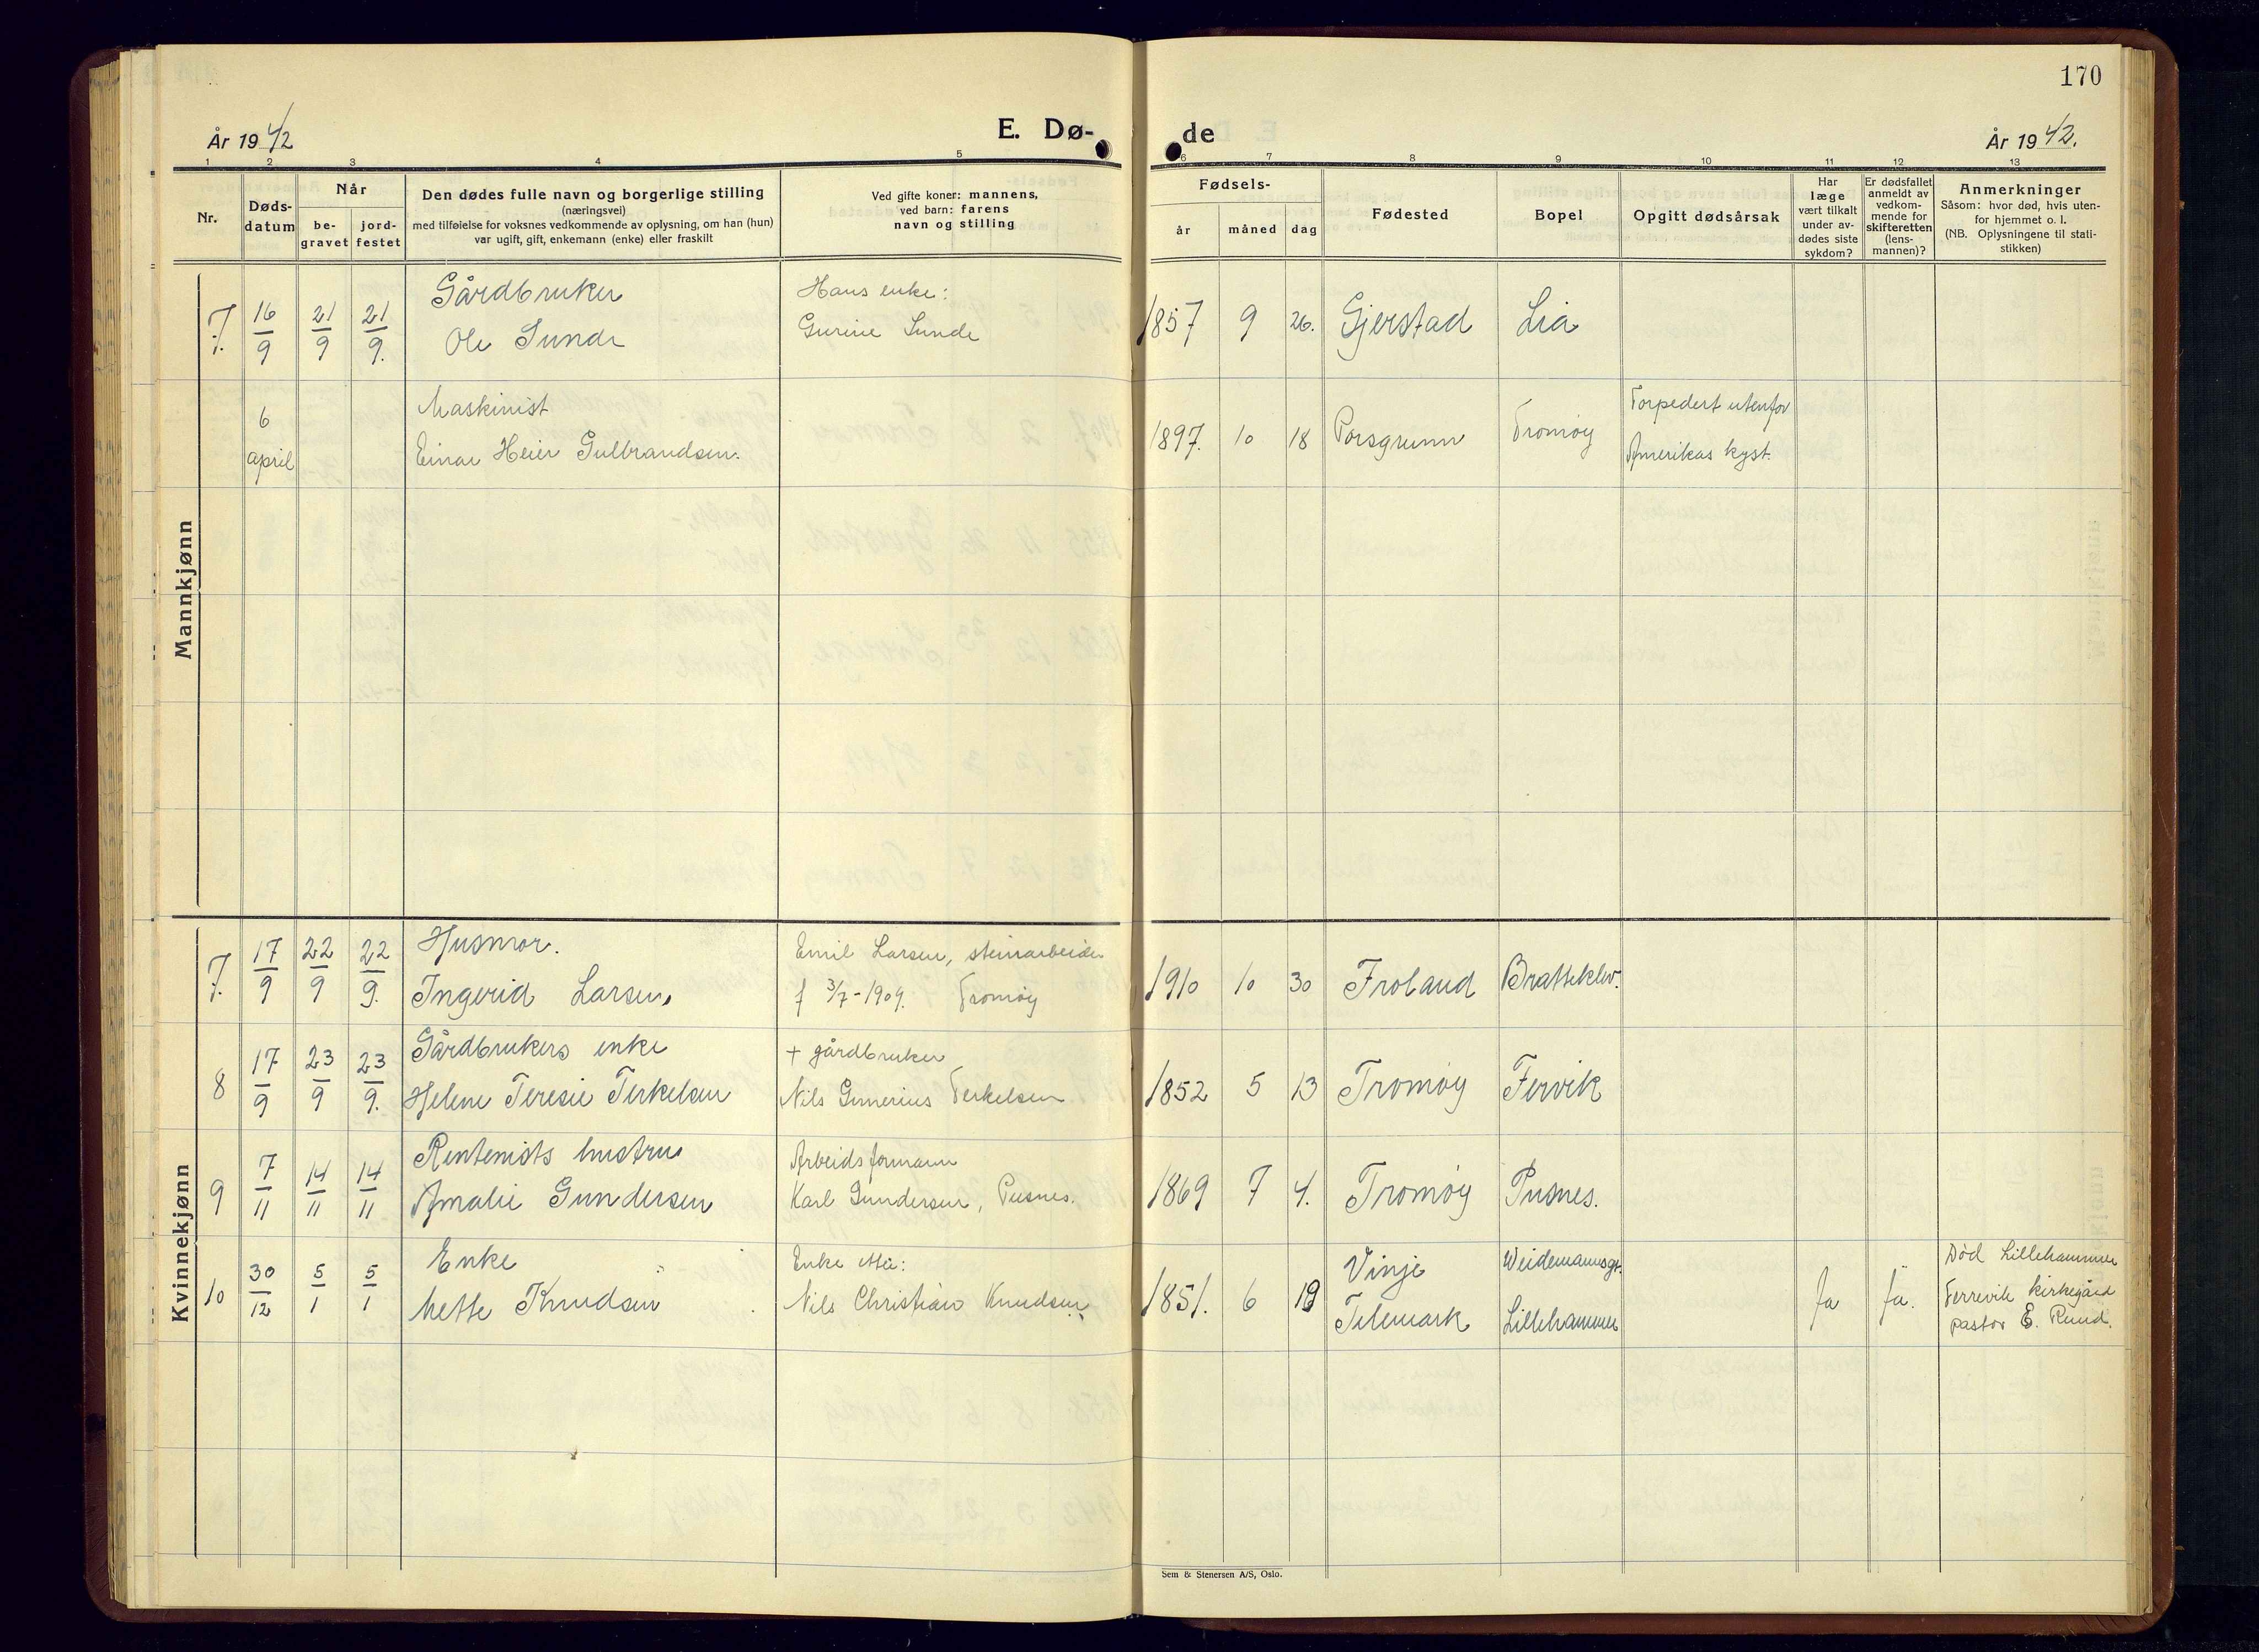 170
År 1942
E. Dø-
de
År 1942.
1 2 3 4 5 6 7 8 9 10 11 12 13
Nr.
Døds-
datum
Når
be-
gravet
jord-
festet
Den dødes fulle navn og borgerlige stilling
(næringsvei)
med tilføielse for voksnes vedkommende av oplysning, om han (hun)
var ugift, gift, enkemann (enke) eller fraskilt
Ved gifte koner: mannens,
ved barn: farens
navn og stilling
Fødsels-
år måned dag
Fødested
Bopel
Opgitt dødsårsak
Har
læge
vært tilkalt
under av-
dødes siste
sykdom?
Er dødsfallet
anmeldt av
vedkom-
mende for
skifteretten
(lens-
mannen)?
Anmerkninger
Såsom: hvor død, hvis uten-
for hjemmet o. l.
(NB. Oplysningene til stati-
stikken)
Mannkjønn
7. 16/9 21/9 21/9.
Gårdbruker
Ole Sunde
Hans enke:
Gurine Sunde
1857 9 26. Gjerstad Lia
6
april
Maskinist
Einar Heier Gulbrandsen.
1897. 10 18 Porsgrunn Tromøy
Torpedert utenfor
Amerikas kyst.
Kvinnekjønn
7. 17/9 22/9 22/9.
Husmor.
Ingerid Larsen,
Emil Larsen, steinarbeider
f 3/7-1909. Tromøy
1910 10 30 Froland Bratteklev.
8 17/9 23/9 23/9.
Gårdbrukers enke
Helene Teresie Terkelsen
+ gårdbruker
Nils Gunerius Terkelsen
1852 5 13 Tromøy Fervik
9 7/11 14/11 14/11
Rentenists hustru
Amalie Gundersen
Arbeidsformann
Karl Gundersen, Pusnes.
1869 7 4. Tromøy Pusnes.
10 30/12 5/1 5/1
Enke
Mette Knudsen
Enke etter:
Nils Christian Knudsen.
1851. 6 19
Vinje
Telemark
Weidemannsgt.
Lillehammer
Ja Ja.
Død Lillehammer
Færvik kirkegård
pastor E. Ruud.
Sem & Stenersen A/S, Oslo.